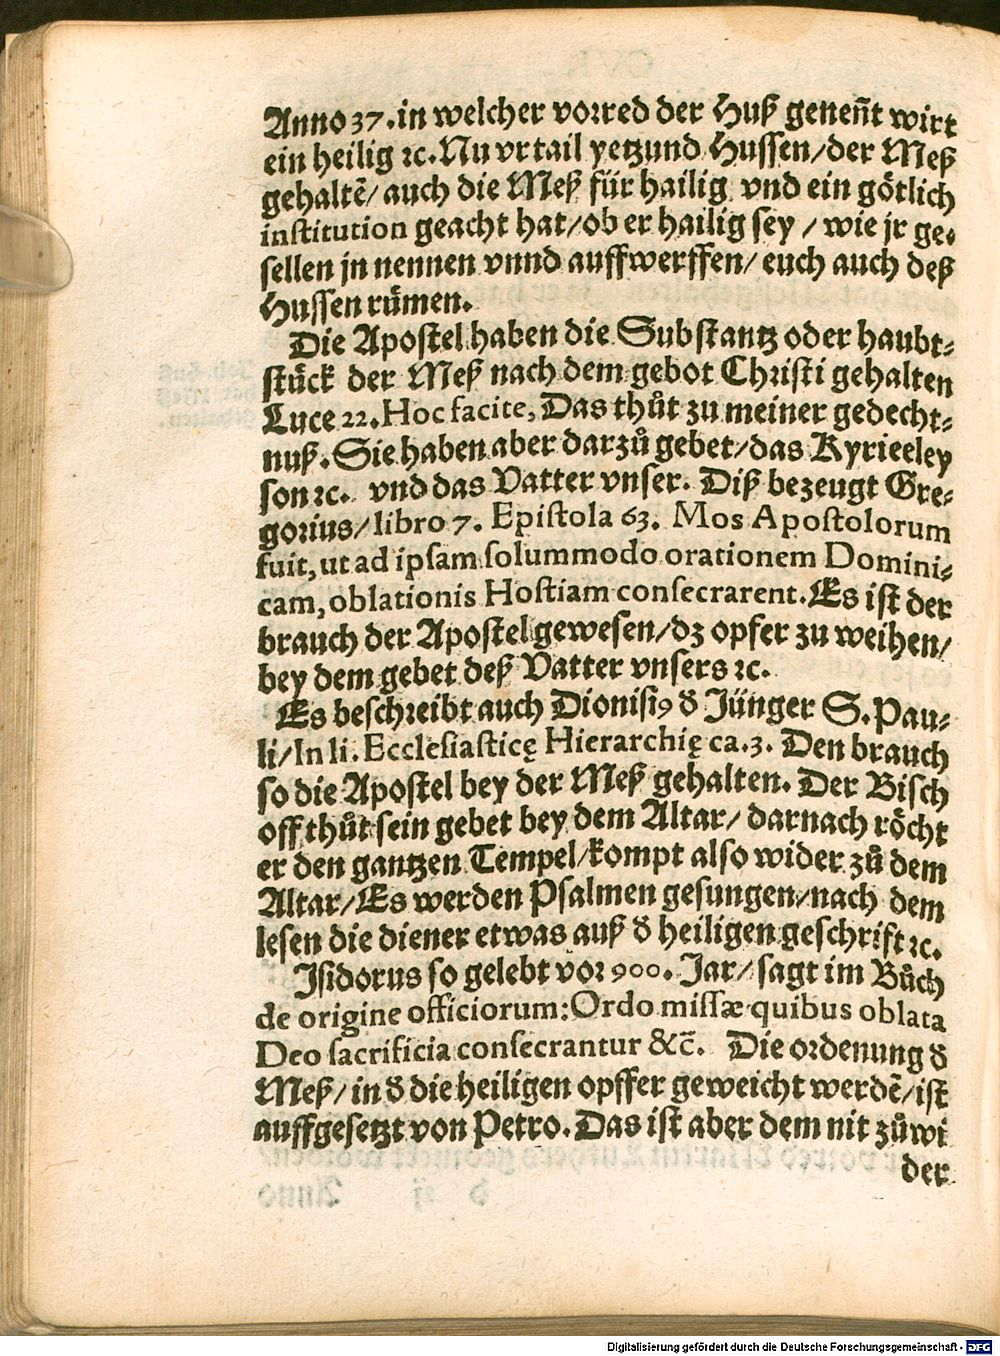 Anno 37. in welcher vorred der Huß geneñt wirt
ein heilig ⁊c. Nu vrtail yetzund Hussen/der Meß
gehaltẽ/ auch die Meß für hailig vnd ein götlich
institution geacht hat/ob er hailig sey / wie jr ge⸗
sellen jn nennen vnnd auffwerffen/ euch auch deß
Hussen rümen.
Die Apostel haben die Substantz oder haubt⸗
stück der Meß nach dem gebot Christi gehalten
Luce 22. Hoc facite, Das thůt zu meiner gedecht⸗
nuß. Sie haben aber darzů gebet/das Kyrieeley
son ⁊c. vnd das Vatter vnser. Diß bezeugt Gre⸗
gorius/libro 7. Epistola 63. Mos Apostolorum
fuit, ut ad ipsam solummodo orationem Domini⸗
cam, oblationis Hostiam consecrarent. Es ist der
brauch der Apostel gewesen/dz opfer zu weihen/
bey dem gebet deß Vatter vnsers ⁊c.
Es beschreibt auch Dionisiꝰ ð Jünger S. Pau⸗
li/In li. Ecclesiasticę Hierarchię ca. 3. Den brauch
so die Apostel bey der Meß gehalten. Der Bisch
off thůt sein gebet bey dem Altar/ darnach röcht
er den gantzen Tempel/kompt also wider zů dem
Altar/Es werden Psalmen gesungen/nach dem
lesen die diener etwas auß ð heiligen geschrift ⁊c.
Isidorus so gelebt vor 900. Jar/ sagt im Bůch
de origine officiorum: Ordo missæ quibus oblata
Deo sacrificia consecrantur &c̃. Die ordenung ð
Meß/ in ð die heiligen opffer geweicht werdẽ/ist
auffgesetzt von Petro. Das ist aber dem nit zůwi
der
Digitalisierung gefördert durch die Deutsche Forschungsgemeinschaft - DFG